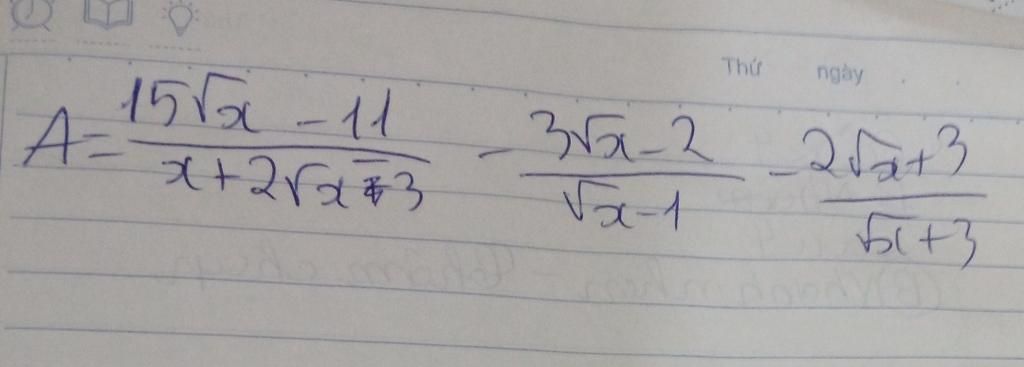 Thứ ngày
A = \frac{15\sqrt{x} - 11}{x + 2\sqrt{x} - 3} - \frac{3\sqrt{x} - 2}{\sqrt{x} - 1} - \frac{2\sqrt{x} + 3}{\sqrt{x} + 3}